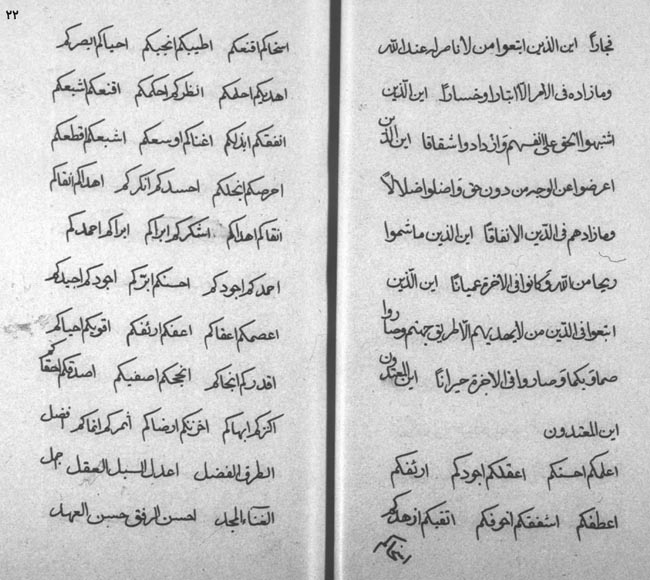 فجارا این الذین ابتغوا من لا ناصر له عند الله
وما زاده فی الامر الا تبارا وخسارا این الذین
اشتبهوا الحق علی انفسهم وازدادوا شقاقا این الذین
اعرضوا عن الوجه من دون حق واضلوا ضلالا
وما زادهم فی الدین الا نفاقا این الذین ما شموا
ریحا من الله وکانوا فی الاخرة عمیانا این الذین
ابتغوا فی الدین من لا یهدیهم الا طریق جهنم وصاروا
صما وبکما وصاروا فی الاخرة حیرانا این المعتدون
این المعتدون
اعلمکم احسنکم اعقلکم اجودکم ارئفکم
اعطفکم اشفقکم اخوفکم اتقیکم ازهدکم
اسخاکم
٢٢
اسخاکم اقنعکم اطیبکم انجبکم احیاکم ابصرکم
اهدیکم احلمکم انظرکم احکمکم اقنعکم اشبعکم
انفقکم ابذلکم اغناکم اوسعکم اشبعکم اقطعکم
احرصکم انحلکم احسدکم انکرکم اهداکم انقاکم
انقاکم اهداکم اشکرکم ابراکم ابراکم احمدکم
احمدکم اجودکم احسنکم ابرکم اجودکم اجیدکم
اعصمکم اعقاکم اعفکم ارئفکم اقویکم احیاکم
اقدرکم انجاکم انجحکم اصفیکم اصدقکم احقاکم
اکرمکم ابهاکم اخزنکم ارضاکم اثمرکم ابقاکم افضل
الطرق الفضل اعدل السبل العقل اجمل
الغناء المجد احسن الرفق حسن العهد